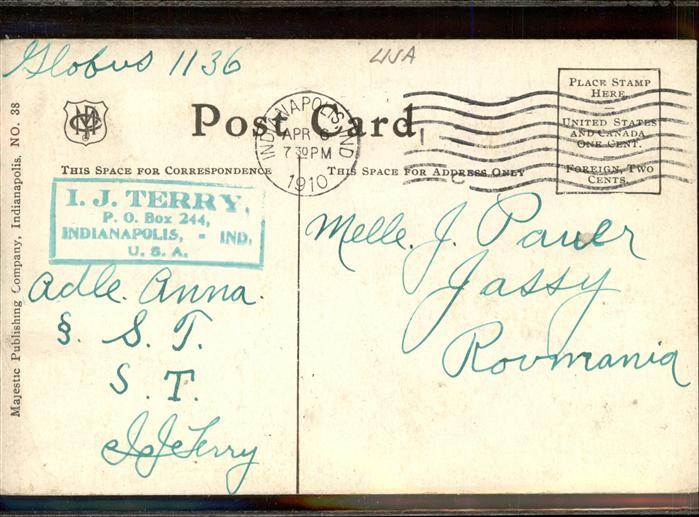 Globus 1136
USA
Post Card
INDIANAPOLIS, IND
APR 6
7 30 PM
1910
PLACE STAMP
HERE.
UNITED STATES
AND CANADA,
ONE CENT.
FOREIGN, TWO
CENTS.
THIS SPACE FOR CORRESPONDENCE
THIS SPACE FOR ADDRESS ONLY
I. J. TERRY,
P. O. BOX 244,
INDIANAPOLIS, - IND.
U. S. A.
Adle. Anna.
§. S. T.
S. T.
I J Terry
Melle. J. Pauer
Jassy
Roumania
Majestic Publishing Company, Indianapolis. NO. 38